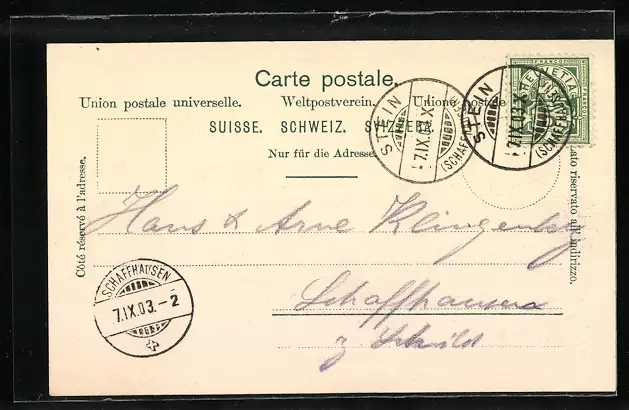 Carte postale.
Union postale universelle. Weltpostverein. Unione postale
SUISSE. SCHWEIZ. SVIZZERA.
Nur für die Adresse.
Côté réservé à l'adresse.
lato riservato all' indirizzo.
HELVETIA
FRANCO
STEIN
7.IX.03.X
(SCHAFFHAUSEN)
STEIN
7.IX.03.X
(SCHAFFHAUSEN)
Hans & Arne Klingenberg
Schaffhausen
z.
SCHAFFHAUSEN
7.IX.03.-2